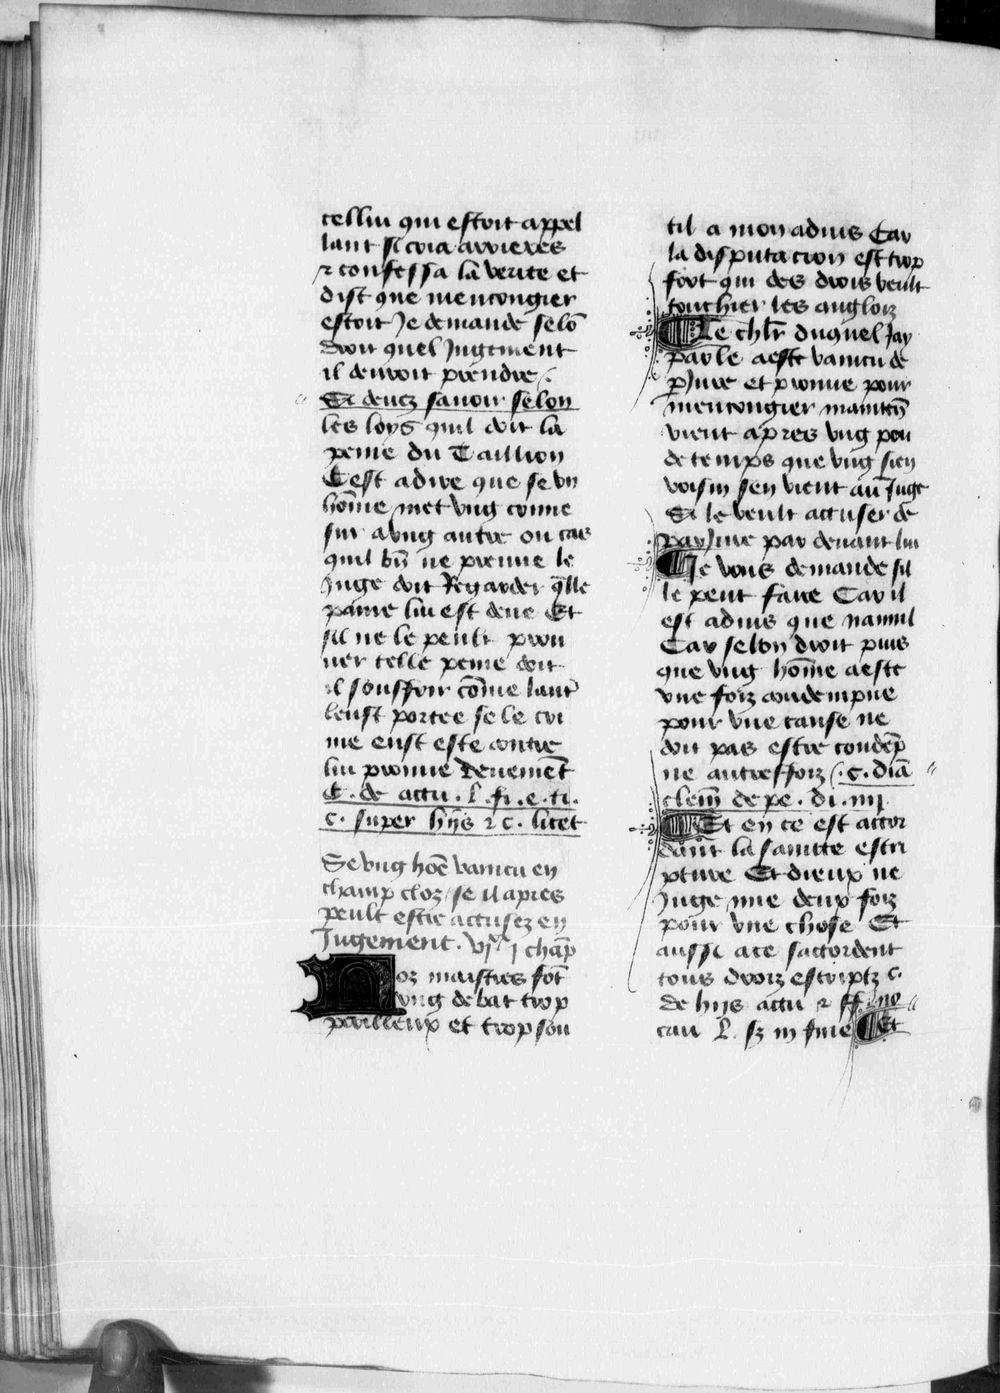 cellui qui estoit appel
lant si cria arrieres
⁊ confessa la verite et
dist que mencongier
estoit Je demande selõ
droit quel Jugement
il devroit prendre
Si devez savoir selon
les loys quil doit la
peine du Taillion
Cest adire que se vn
hõme met vng crime
sur avng autre ou cas
quil bñ ne preuue le
Juge doit Regarder q̃lle
paine lui est deue Et
sil ne le peult prou
uer telle peine doit
il souffrir cõme lautr̃
leust portee se le cri
me eust este contre
lui prouue deuemẽt
C. de accu. l. fi. e. ti.
c. super hijs ⁊ c. licet
Se vng hõe vaincu en
champ cloz se il apres
peult estre accusez en
Jugement. vj^xx j chap̃
Noz maistres fõt
vng debat trop
perilleux et trop sou
til a mon aduis Car
la disputacion est trop
fort qui des drois veult
touchier les angloiz
Le chl̃r duquel Jay
parle aeste vaincu de
p̱Jure et prouue pour
mencongier mainteñ
vient apres vng pou
de temps que vng sien
voisin sen vient au Juge
Si le veult accuser de
parJure par deuant lui
Je vous demande sil
le peut faire Car il
est aduis que nannil
Car selon droit puis
que vng hõme aeste
vne foiz condempne
pour vne cause ne
doit pas estre condẽp
ne autreffoiz. c. diã
clem̃ de pe. di. iiij
Et en ce est accor
dant la saincte escri
pture Et dieux ne
Juge mie deux foiz
pour vne chose Et
aussi ace saccordent
tous droiz escriptz c.
de hijs accu ⁊ ff. no
cau l. sz in fine Et